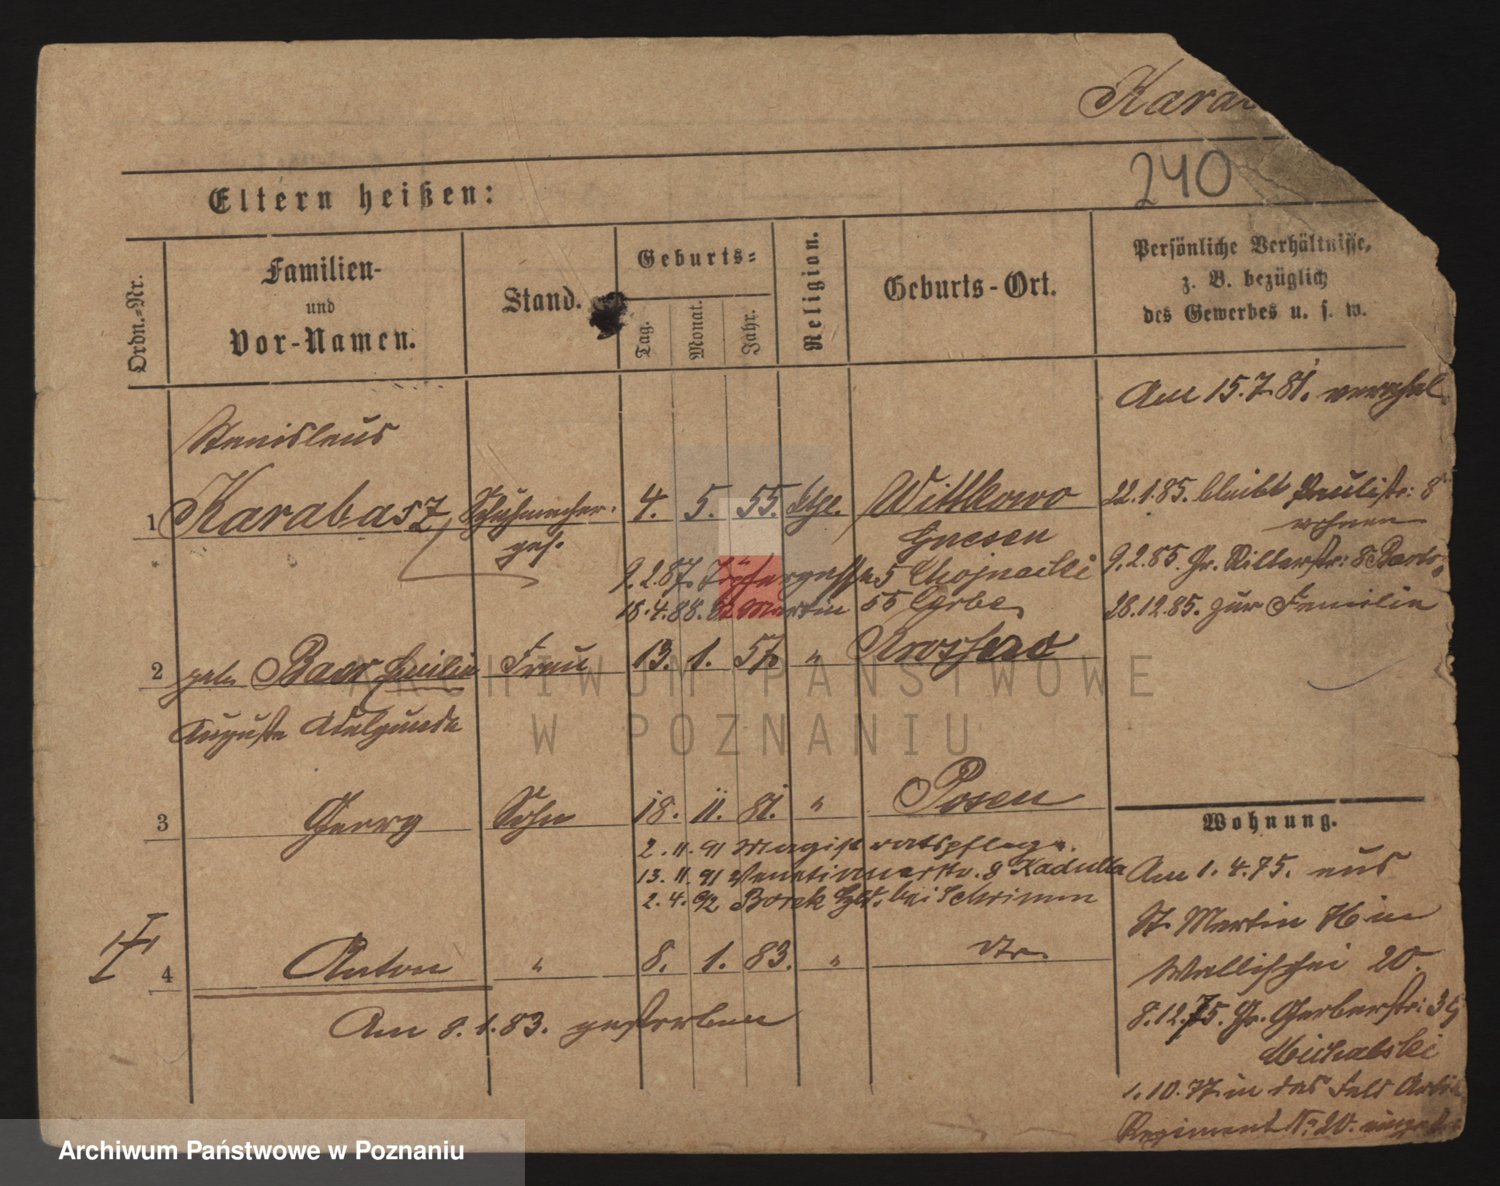 Kara
240
Eltern heißen:
Ordn.-Nr.
Familien-
und
Vor-Namen.
Stand.
Geburts-
Tag.
Monat.
Jahr.
Religion.
Geburts-Ort.
Persönliche Verhältnisse,
z. B. bezüglich
des Gewerbes u. s. w.
Am 15.7.81. verehel.
Stanislaus
1 Karabasz Schuhmacher- 4. 5. 55. Wittkowo
ges. Gnesen
22.1.85. bleibt Paulistr: 8
wohnen
9.2.87. 5 Chojnacki
9.2.85. Gr. Ritterstr: 8
18.4.88. St Martin 55
28.12.85. zur Familie
2 geb. Baer Frau 13. 1. 57 "
Auguste Adelgunde
3 Georg Sohn 18. 11. 81. " Posen
2.11.91 Magistratspflege.
13.11.91 Venetianerstr. 8 Kadulla
2.4.92 Borek bei Schrimm
4 Anton " 8. 1. 83. "
Am 8.1.83. gestorben
Wohnung.
Am 1.4.75. aus
St. Martin 76 in
Wallischei 20.
8.12.75. Gr. Gerberstr:
Michalski
1.10.77 in das Feld Arti
Regiment No 20.
ARCHIWUM PAŃSTWOWE
W POZNANIU
Archiwum Państwowe w Poznaniu